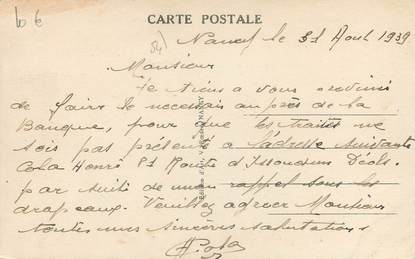 10 €
CARTE POSTALE
54)
Nancy le 31 Aout 1939
Monsieur
Je tiens a vous prevenir
de faire le necessair auprès de la
Banque, pour que les traites ne
sois pas présenté a l'adresse suivante
Cola Henri 81 Route d'Issoudun Déols.
par suite de mon rappel sous les
drapeaux. Veuillez agréer Monsieur
toutes mes sincères salutations
HCola